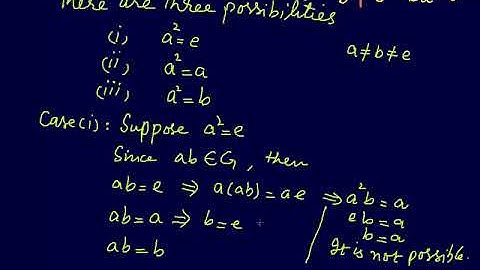 There are three possibilities
(i) a²=e
a≠b≠e
(ii) a²=a
(iii) a²=b
Case(i): Suppose a²=e
Since ab∈G, then
ab=e ⇒ a(ab)=ae ⇒ a²b=a
eb=a
ab=a ⇒ b=e
b=a
It is not possible.
ab=b